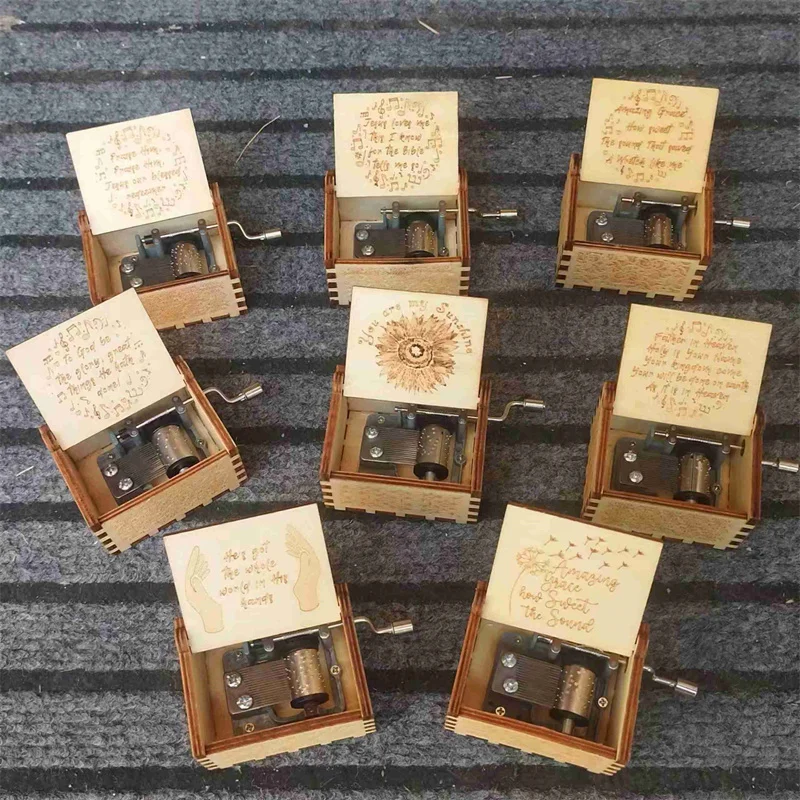 Praise Him,
Praise Him,
Jesus our blessed
redeemer
Jesus loves me
This I know
for the Bible
Tells me so
Amazing Grace
How sweet
The sound that saved
A Wretch like me
To God be
The glory great
Things He hath
done!
You are my Sunshine
Father in Heaven
Holy is Your Name
Your kingdom come
Your will be done on earth
As it is in Heaven
He's got
the whole
world in His
hands
Amazing
Grace
how Sweet
the Sound